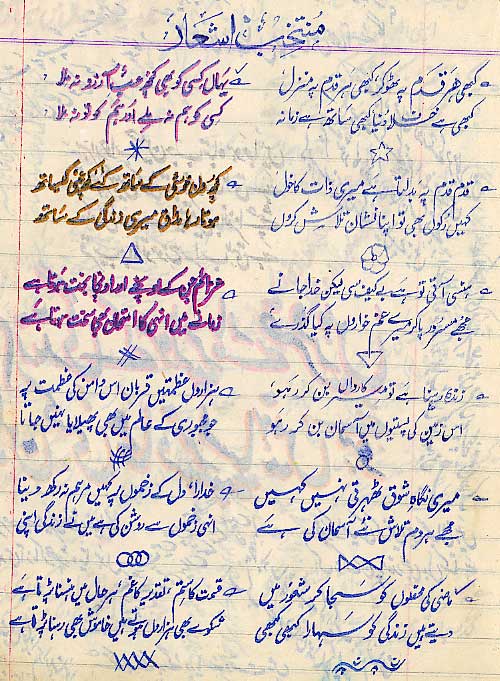 منتخب اشعار
کبھی ہر قدم پہ ٹھوکر کبھی ہر قدم پہ منزل
کبھی ہے خفا دنیا کبھی ساتھ ہے زمانہ
یہاں کسی کو بھی کچھ حسب آرزو نہ ملا
کسی کو ہم نہ ملے اور ہم کو تو نہ ملا
قدم قدم پہ بدلتا ہے میری ذات کا خول
کہیں رکوں بھی تو اپنا نشاں تلاش کروں
کچھ دن خوشی کے ساتھ کٹے کچھ غمی کے ساتھ
ہوتا رہا مذاق میری زندگی کے ساتھ
ہنسی آتی تو ہے بے کیف سی لیکن خدا جانے
مجھے مسرور پا کر میرے غم خواروں پہ کیا گذرے
عزائم جن کے اونچے اور اونچا بخت ہوتا ہے
زمانے میں انہی کا امتحان بھی سخت ہوتا ہے
زندہ رہنا ہے تو میر کارواں بن کر رہو
اس زمین کی پستیوں میں آسمان بن کر رہو
ہزاروں عظمتیں قربان اس دامن کی عظمت پہ
جو مجبوری کے عالم میں بھی پھیلایا نہیں جاتا
میری نگاہ شوق ٹھہرتی نہیں کہیں
مجھے ہر دم تلاش نئے آسمان کی ہے
خدارا، دل کے زخموں پہ کہیں مرہم نہ رکھ دینا
انہی زخموں سے روشن کی ہے میں نے زندگی اپنی
ماضی کی محفلوں کو سجا کر شعور میں
دیتے ہیں زندگی کو سہارا کبھی کبھی
قسمت کا ستم، تقدیر کا غم ہر حال میں ہنسنا پڑتا ہے
شکوے بھی ہزاروں ہوتے ہیں خاموش بھی رہنا پڑتا ہے